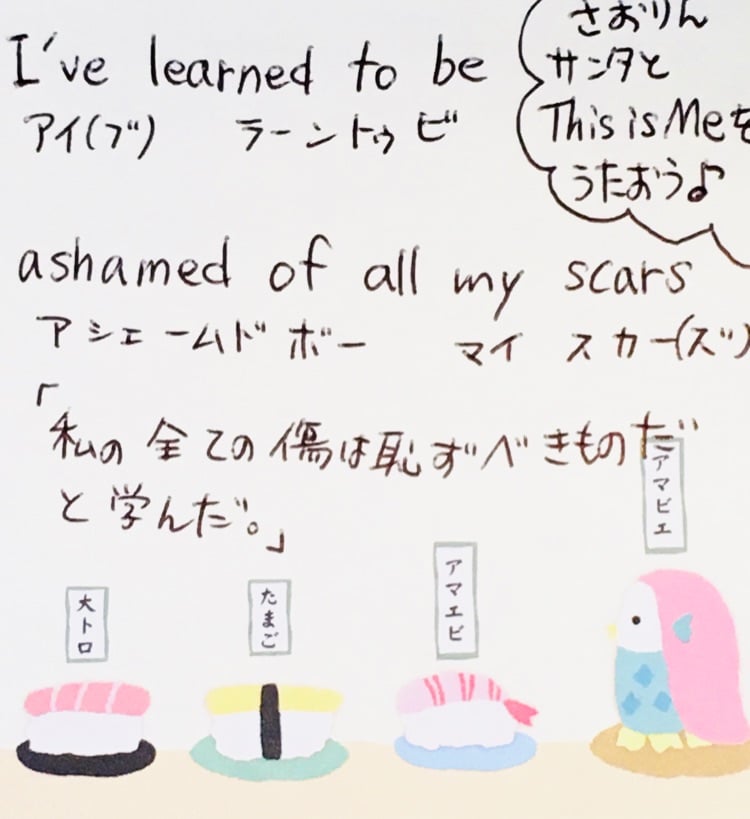 I've learned to be
アイ(ブ) ラーントゥ ビ
さおりん
サンタと
This is Meを
うたおう♪
ashamed of all my scars
アシェームド ボー マイ スカー(ズ)
「私の全ての傷は恥ずべきものだ
と学んだ。」
大トロ
たまご
アマエビ
アマビエ